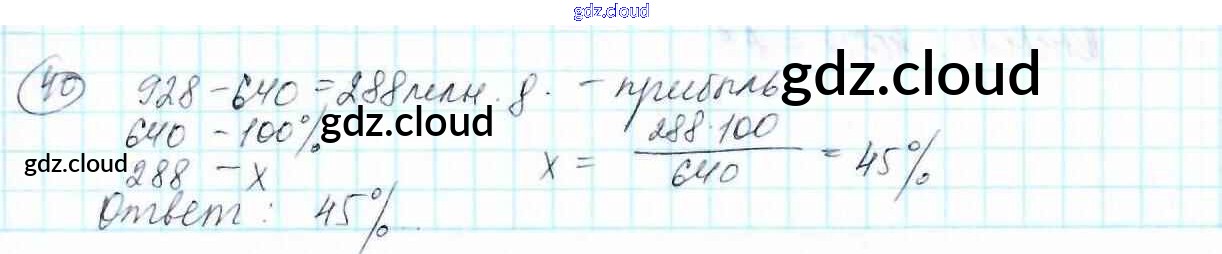 gdz.cloud
40 928 - 640 = 288 млн. д. - прибыль gdz.cloud
640 - 100% gdz.cloud
gdz.cloud 288 - x x = 288·100 / 640 = 45%
Ответ: 45%.